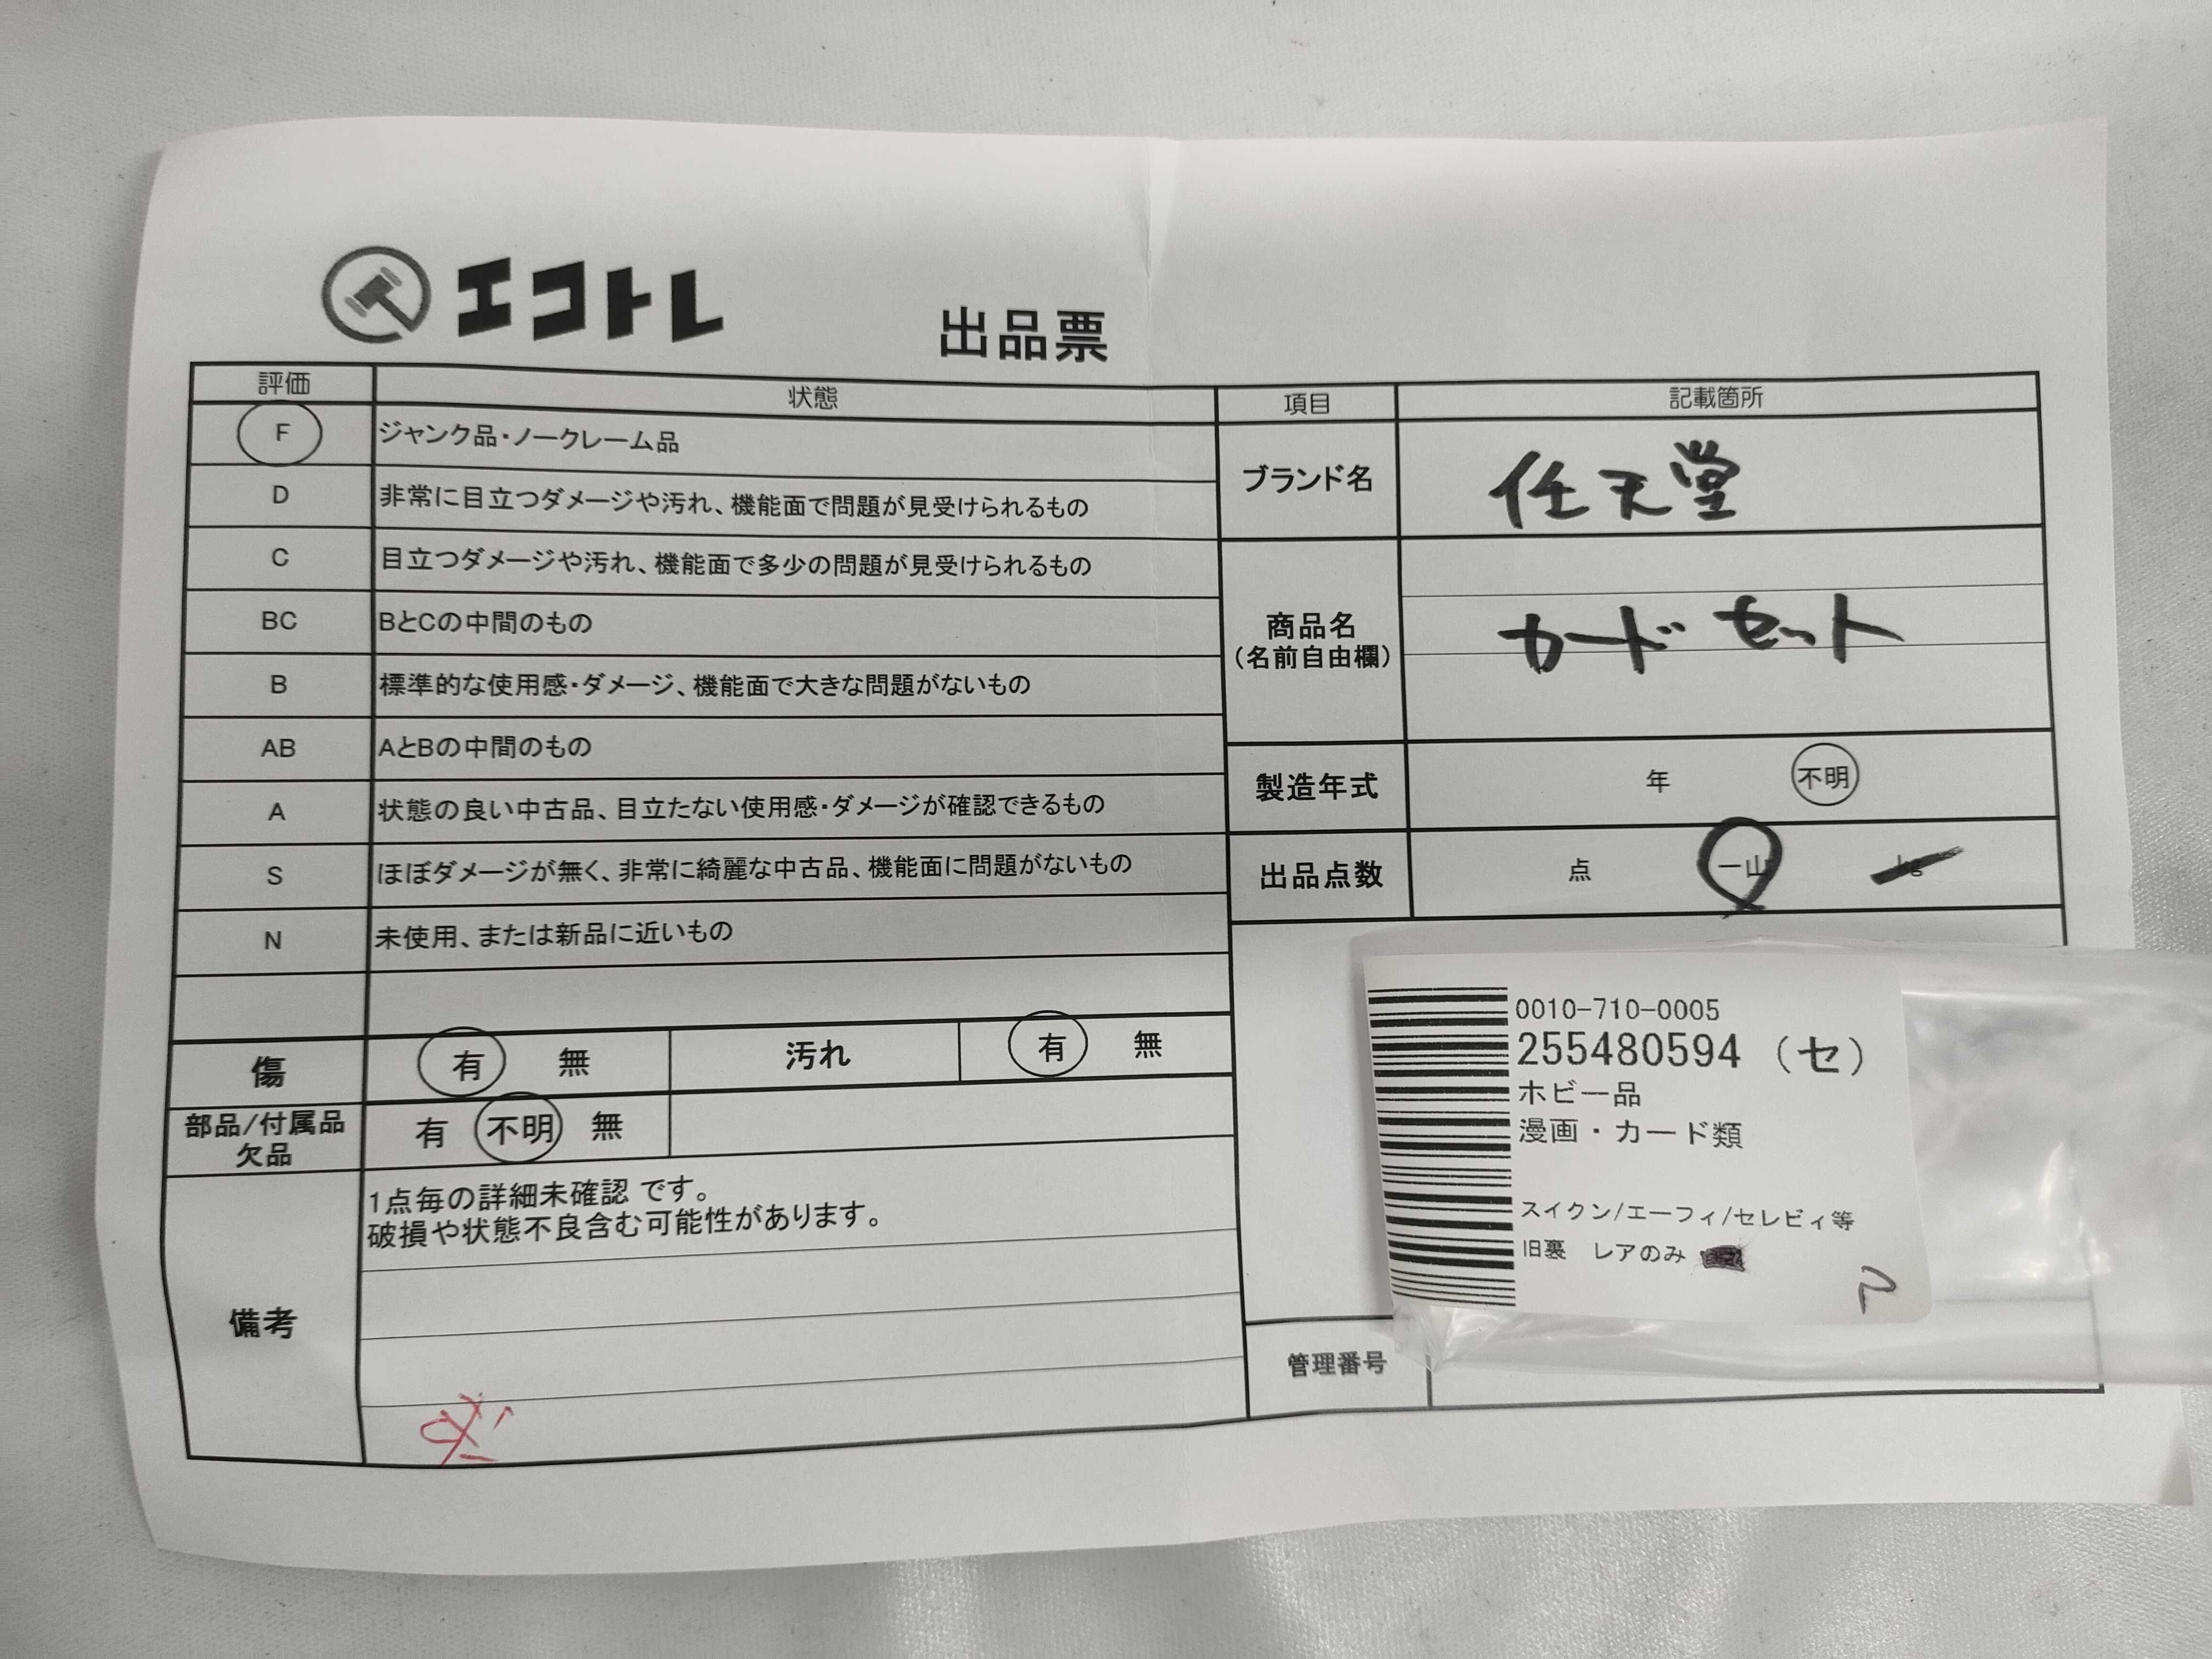 エコトレ
出品票
評価 状態
F ジャンク品・ノークレーム品
D 非常に目立つダメージや汚れ、機能面で問題が見受けられるもの
C 目立つダメージや汚れ、機能面で多少の問題が見受けられるもの
BC BとCの中間のもの
B 標準的な使用感・ダメージ、機能面で大きな問題がないもの
AB AとBの中間のもの
A 状態の良い中古品、目立たない使用感・ダメージが確認できるもの
S ほぼダメージが無く、非常に綺麗な中古品、機能面に問題がないもの
N 未使用、または新品に近いもの
傷 有 無 汚れ 有 無
部品/付属品
欠品 有 不明 無
備考
1点毎の詳細未確認 です。
破損や状態不良含む可能性があります。
項目 記載箇所
ブランド名 任天堂
商品名
(名前自由欄)
カードセット
製造年式 年 不明
出品点数 点 一山 kg
管理番号
0010-710-0005
255480594 (セ)
ホビー品
漫画・カード類
スイクン/エーフィ/セレビィ等
旧裏 レアのみ